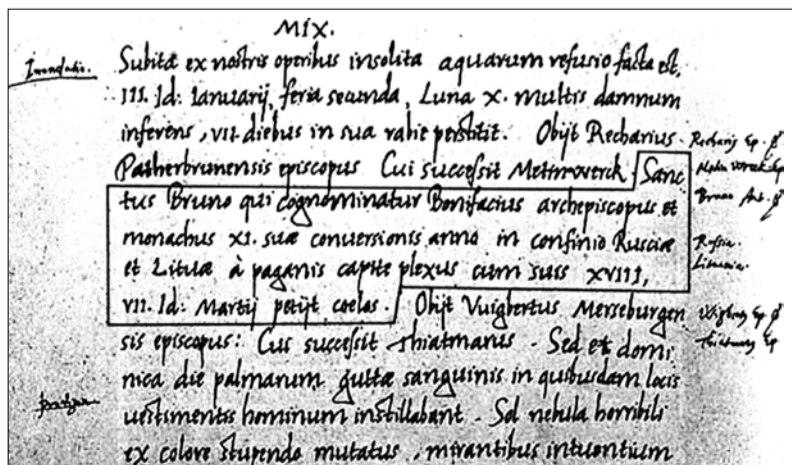 MIX.
Subitæ ex nostris operibus insolita aquarum refusio facta est,
Inundatio.
III. Id: Ianuarij, feria secunda, Luna X. multis damnum
inferens, VII. diebus in sua rabie perstitit. Obijt Recharius
Recharij Ep.
Patherbrunensis episcopus. Cui successit Metinwerck. Sanc
tus Bruno qui cognominatur Bonifacius archepiscopus et
monachus XI. suæ conversionis anno in confinio Rusciæ
Russia.
et Lituæ à paganis capite plexus cum suis XVIII,
Lituania.
VII. Id: Martij petijt coelos. Obijt Vuigbertus Merseburgen
sis episcopus: Cui successit Thiatmarus. Sed et domi
nica die palmarum guttæ sanguinis in quibusdam locis
vestimentis hominum instillabant. Sol nebula horribili
ex colore stupendo mutatus, mirantibus intuentium